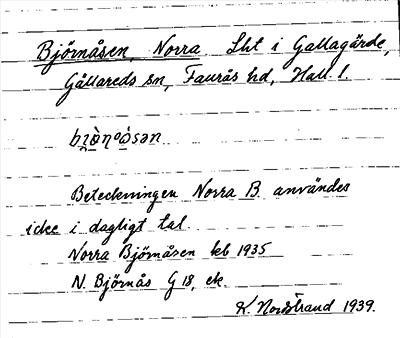 Björnåsen, Norra. Lht i Gallagärde,
Gällareds sn, Faurås hd, Hall. l.
Beteckningen Norra B. användes
icke i dagligt tal.
Norra Björnåsen kb 1935
N. Björnås G 18, ek.
K. Nordstrand 1939.